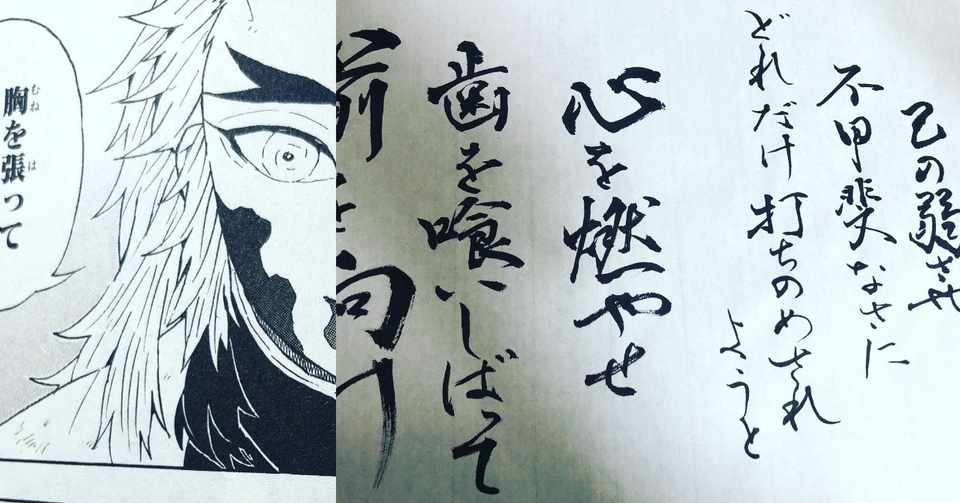 己の弱さや
不甲斐なさに
どれだけ打ちのめされ
ようと
心を燃やせ
歯を喰いしばって
前を向け
胸を張って
むね
は